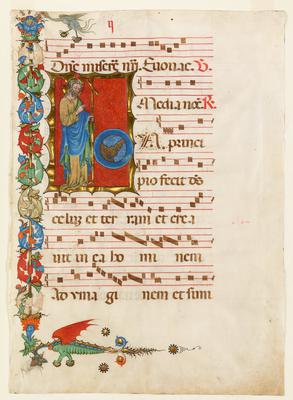 Dñe miserē nr̄i. Euouae. V.
Media nocē R.
A. princi
pio fecit d̄s
celuz et ter ram et crea
uit in ea ho mi nem
Ad yma gi nem et simi